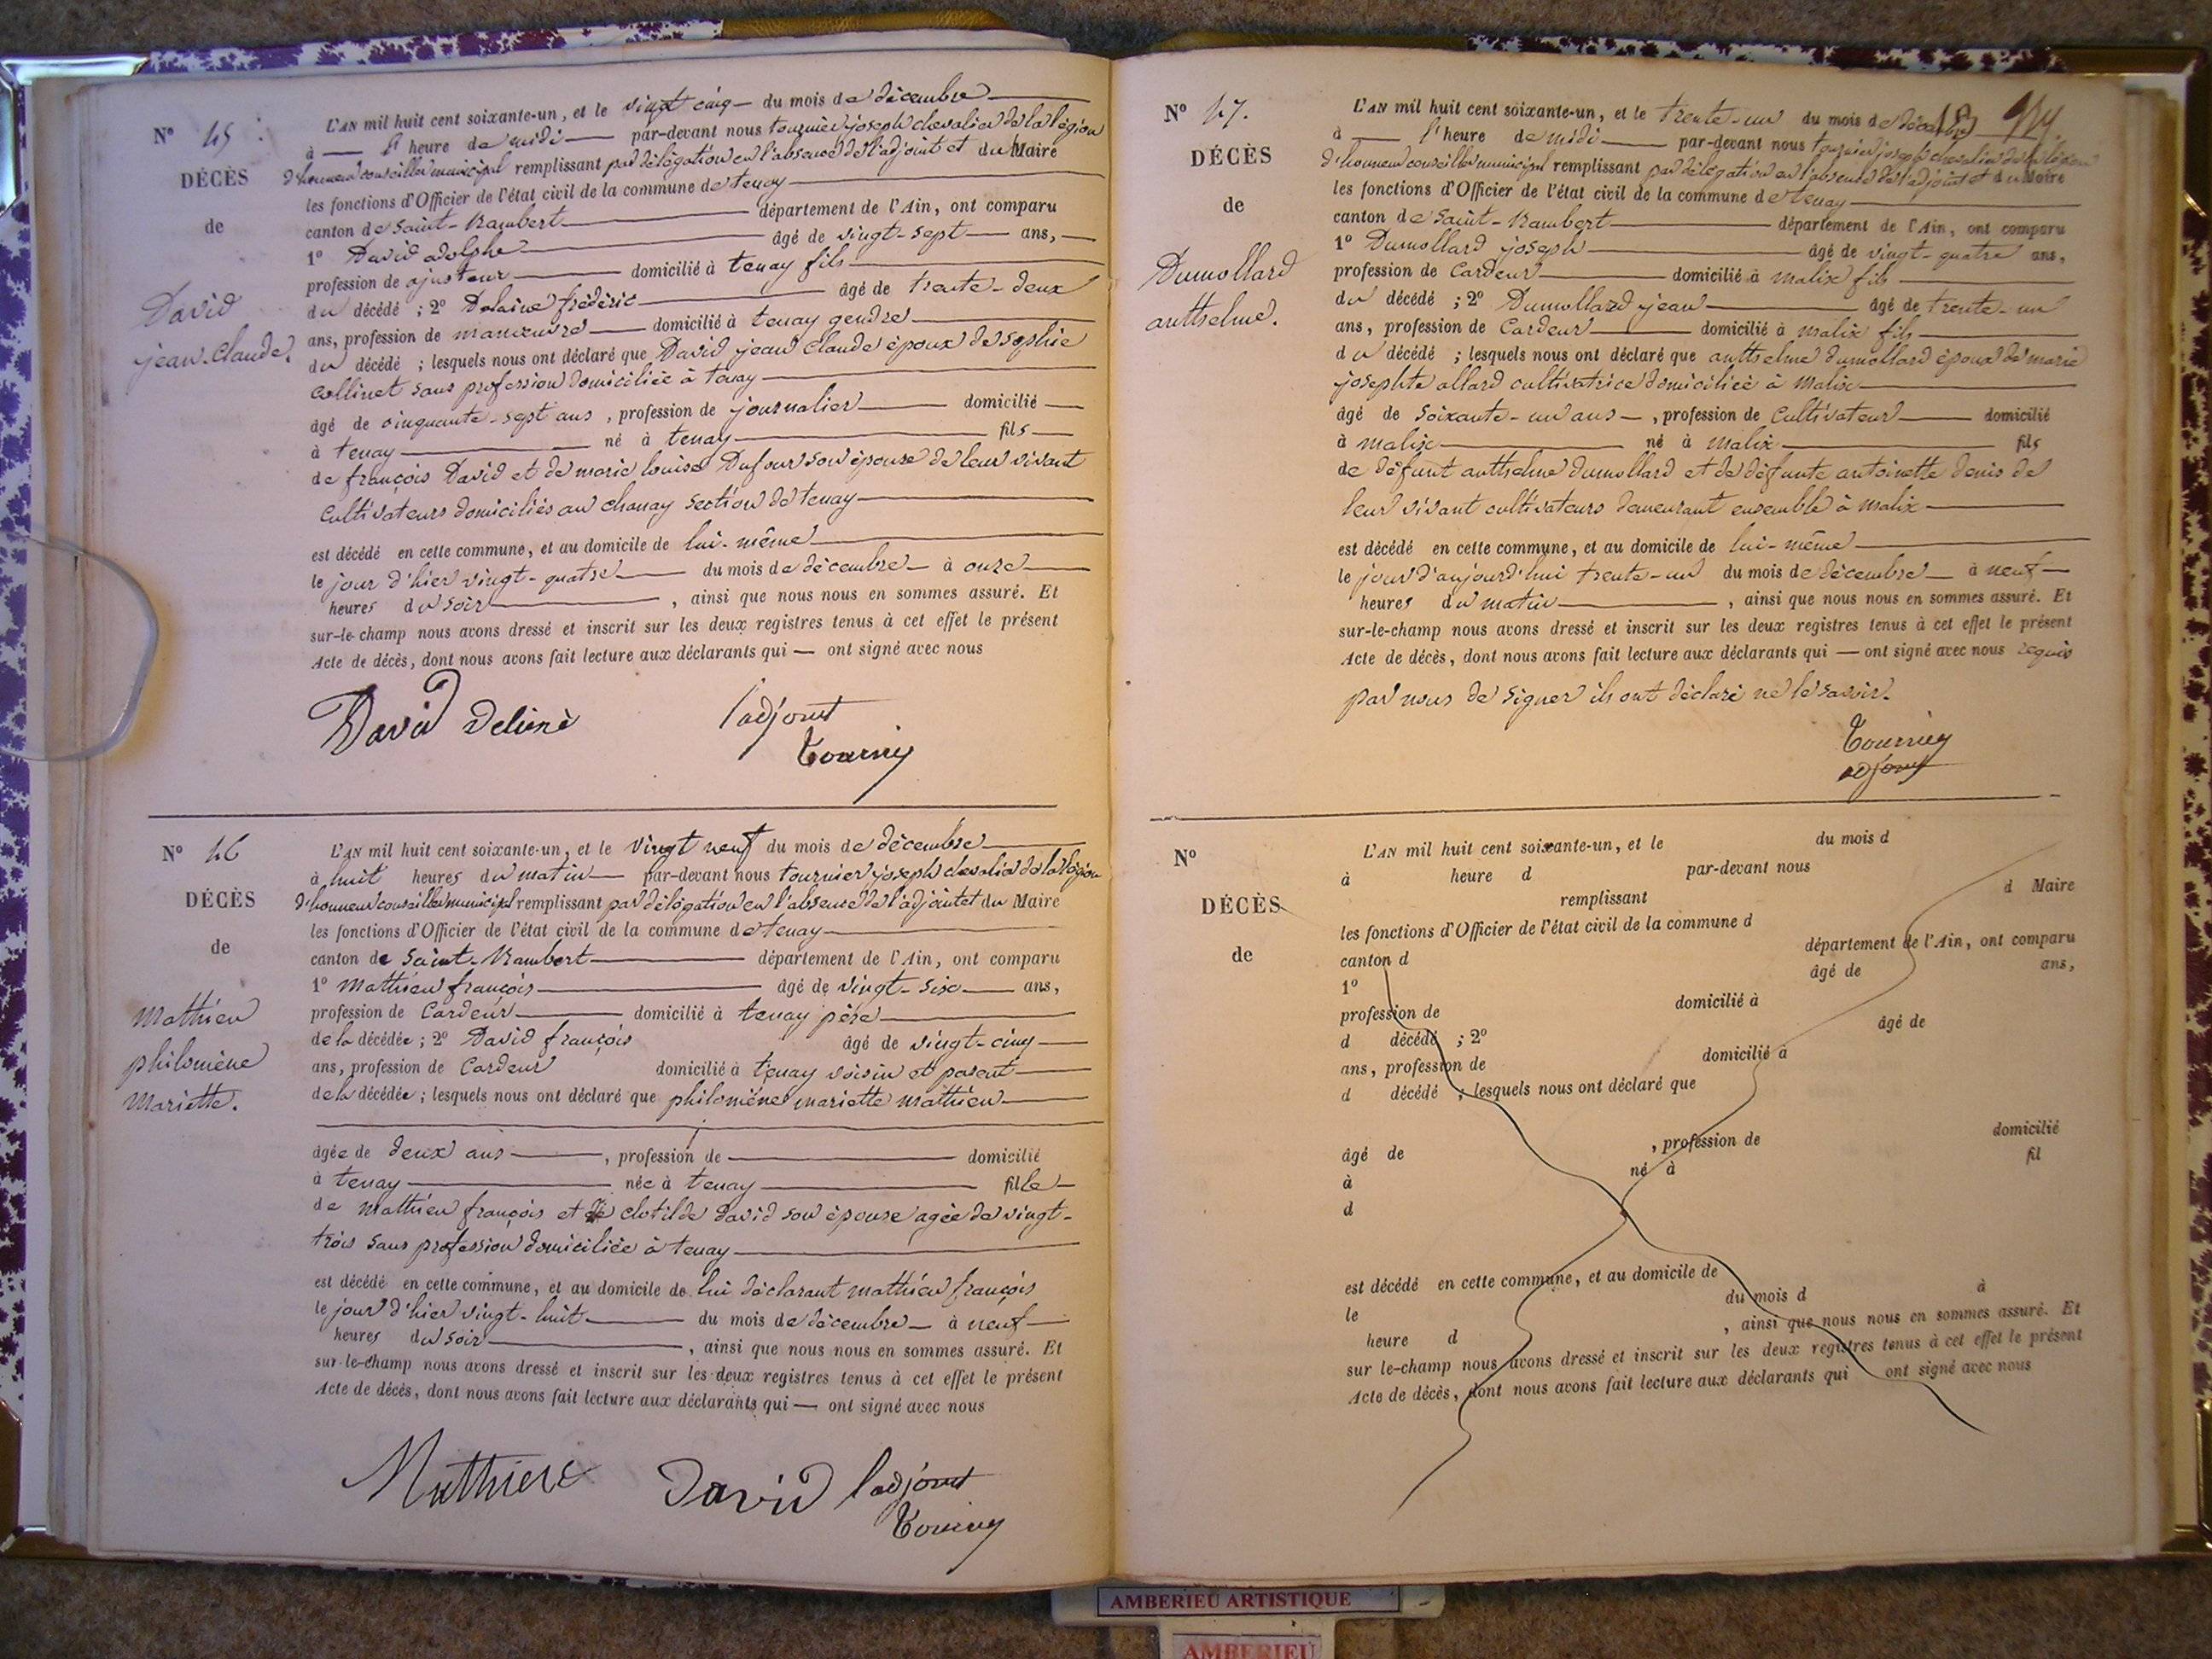 N° 45
DÉCÈS
de
David
jean-Claude.
L'AN mil huit cent soixante-un, et le vingt cinq — du mois de décembre
à — l'heure de midi — par-devant nous tournier joseph chevalier de la légion
d'honneur conseiller municipal remplissant par délégation en l'absence de l'adjoint et du Maire
les fonctions d'Officier de l'état civil de la commune de tenay
canton de Saint-Rambert — département de l'Ain, ont comparu
1° David adolphe — âgé de vingt-sept — ans,
profession de ajusteur — domicilié à tenay fils
du décédé ; 2° Delainé frédéric — âgé de trente-deux
ans, profession de manoeuvre — domicilié à tenay gendre
du décédé ; lesquels nous ont déclaré que David jean Claude époux de Sophie
Collinet sans profession domiciliée à tenay
âgé de cinquante-sept ans, profession de journalier — domicilié
à tenay — né à tenay — fils
de françois David et de marie louise Dufour son épouse de leur vivant
Cultivateurs domiciliés au chanay Section de tenay
est décédé en cette commune, et au domicile de lui-même
le jour d'hier vingt-quatre — du mois de décembre — à onze
heures du soir — , ainsi que nous nous en sommes assuré. Et
sur-le-champ nous avons dressé et inscrit sur les deux registres tenus à cet effet le présent
Acte de décès, dont nous avons fait lecture aux déclarants qui — ont signé avec nous
David l'adjoint
N° 46
DÉCÈS
de
Mathieu
philomène
Mariette.
L'AN mil huit cent soixante-un, et le vingt neuf du mois de décembre
à huit heures du matin — par-devant nous tournier joseph chevalier de la légion
d'honneur conseiller municipal remplissant par délégation en l'absence de l'adjoint et du Maire
les fonctions d'Officier de l'état civil de la commune de tenay
canton de Saint-Rambert — département de l'Ain, ont comparu
1° Mathieu françois — âgé de vingt-six — ans,
profession de Cardeur — domicilié à tenay père
de la décédée ; 2° David françois âgé de vingt-cinq
ans, profession de Cardeur domicilié à tenay voisin et parent
de la décédée ; lesquels nous ont déclaré que philomène mariette mathieu
âgée de deux ans — , profession de — domicilié
à tenay — née à tenay — fille
de Mathieu françois et de clotilde David son épouse agée de vingt-
trois sans profession domiciliée à tenay
est décédé en cette commune, et au domicile de lui déclarant mathieu françois
le jour d'hier vingt-huit — du mois de décembre — à neuf
heures du soir — , ainsi que nous nous en sommes assuré. Et
sur-le-champ nous avons dressé et inscrit sur les deux registres tenus à cet effet le présent
Acte de décès, dont nous avons fait lecture aux déclarants qui — ont signé avec nous
Mathieu David l'adjoint
N° 47.
DÉCÈS
de
Dumollard
anthelme.
L'AN mil huit cent soixante-un, et le trente-un du mois de décembre
à — l'heure de midi — par-devant nous tournier joseph chevalier de la légion
d'honneur conseiller municipal remplissant par délégation en l'absence de l'adjoint et du Maire
les fonctions d'Officier de l'état civil de la commune de tenay
canton de Saint-Rambert — département de l'Ain, ont comparu
1° Dumollard joseph — âgé de vingt-quatre ans,
profession de Cardeur — domicilié à malix fils
du décédé ; 2° Dumollard jean — âgé de trente-un
ans, profession de Cardeur — domicilié à malix fils
du décédé ; lesquels nous ont déclaré que anthelme dumollard époux de marie
josephte allard cultivatrice domiciliée à Malix
âgé de Soixante-un ans — , profession de Cultivateur — domicilié
à malix — né à Malix — fils
de défunt anthelme dumollard et de défunte antoinette denis de
leur vivant cultivateurs demeurant ensemble à malix
est décédé en cette commune, et au domicile de lui-même
le jour d'aujourd'hui trente-un du mois de décembre — à neuf
heures du matin — , ainsi que nous nous en sommes assuré. Et
sur-le-champ nous avons dressé et inscrit sur les deux registres tenus à cet effet le présent
Acte de décès, dont nous avons fait lecture aux déclarants qui — ont signé avec nous requis
par nous de signer ils ont déclaré ne le savoir.
N°
DÉCÈS
de
L'AN mil huit cent soixante-un, et le du mois d
à heure d par-devant nous
remplissant d Maire
les fonctions d'Officier de l'état civil de la commune d
canton d département de l'Ain, ont comparu
1° âgé de ans,
profession de domicilié à
d décédé ; 2° âgé de
ans, profession de domicilié à
d décédé ; lesquels nous ont déclaré que
âgé de , profession de domicilié
à né à fil
d
est décédé en cette commune, et au domicile de
le du mois d à
heure d , ainsi que nous nous en sommes assuré. Et
sur le-champ nous avons dressé et inscrit sur les deux registres tenus à cet effet le présent
Acte de décès, dont nous avons fait lecture aux déclarants qui ont signé avec nous
AMBERIEU ARTISTIQUE
AMBERIEU